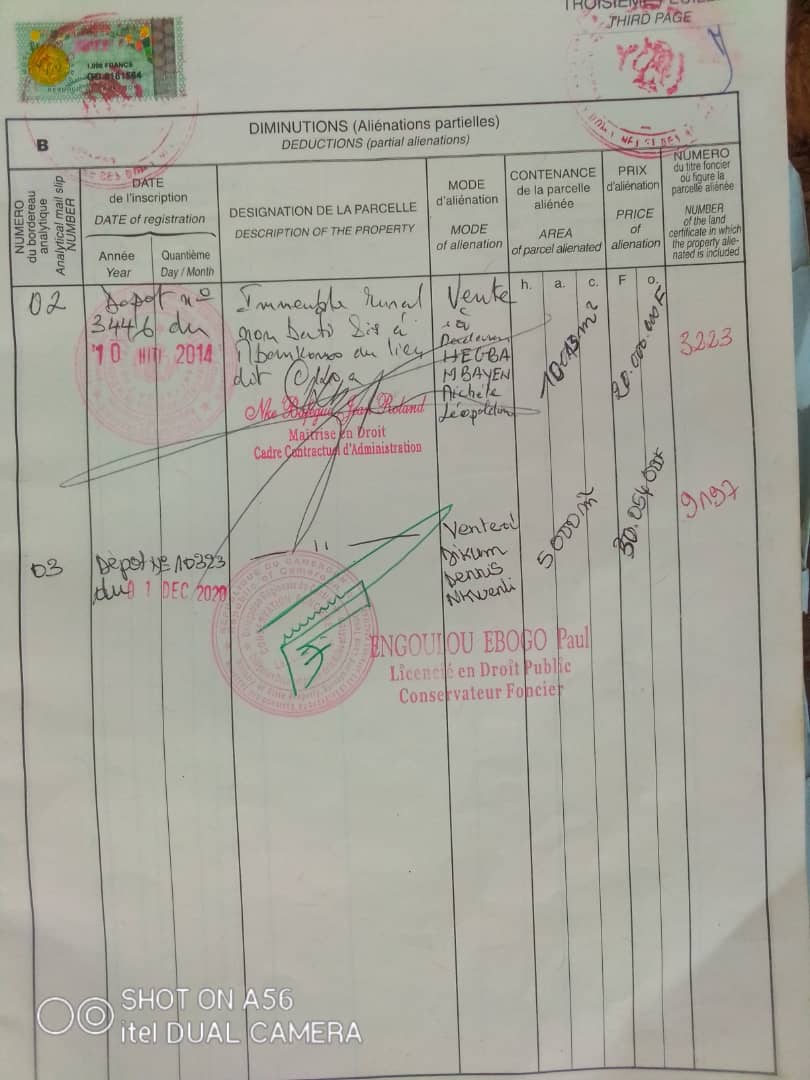 TROISIEME
THIRD PAGE
1.000 FRANCS
B
DIMINUTIONS (Aliénations partielles)
DEDUCTIONS (partial alienations)
NUMERO
du bordereau
analytique
Analytical mail slip
NUMBER
DATE
de l'inscription
DATE of registration
Année
Year
Quantième
Day / Month
DESIGNATION DE LA PARCELLE
DESCRIPTION OF THE PROPERTY
MODE
d'aliénation
MODE
of alienation
CONTENANCE
de la parcelle
aliénée
AREA
of parcel alienated
PRIX
d'aliénation
PRICE
of
alienation
NUMERO
du titre foncier
où figure la
parcelle aliénée
NUMBER
of the land
certificate in which
the property alie-
nated is included
h. a. c. F o.
02
Depot nº
3446 du
10 2014
Immeuble rural
non bati Sis à
au lieu
dit
Vente
à
HEGBA
MBAYEN
Michèle
Léopoldine
20.000.000F
3223
Nke Jean Roland
Maîtrise en Droit
Cadre Contractuel d'Administration
03
Dépot Nº 10323
du 01 DEC 2020
— 11 —
Vente à
Dikum
Dennis
Nkwenti
5000 m2
9197
ENGOULOU EBOGO Paul
Licencié en Droit Public
Conservateur Foncier
SHOT ON A56
itel DUAL CAMERA